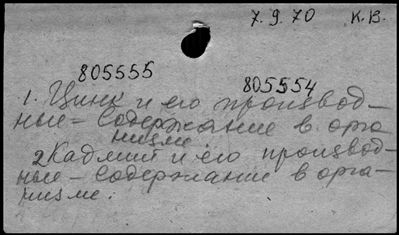 7.9.70 К.В.
805555
805554
1. Цинк и его производ-
ные - содержание в орга
низме
2. Кадмий и его производ-
ные - содержание в орга-
низме.